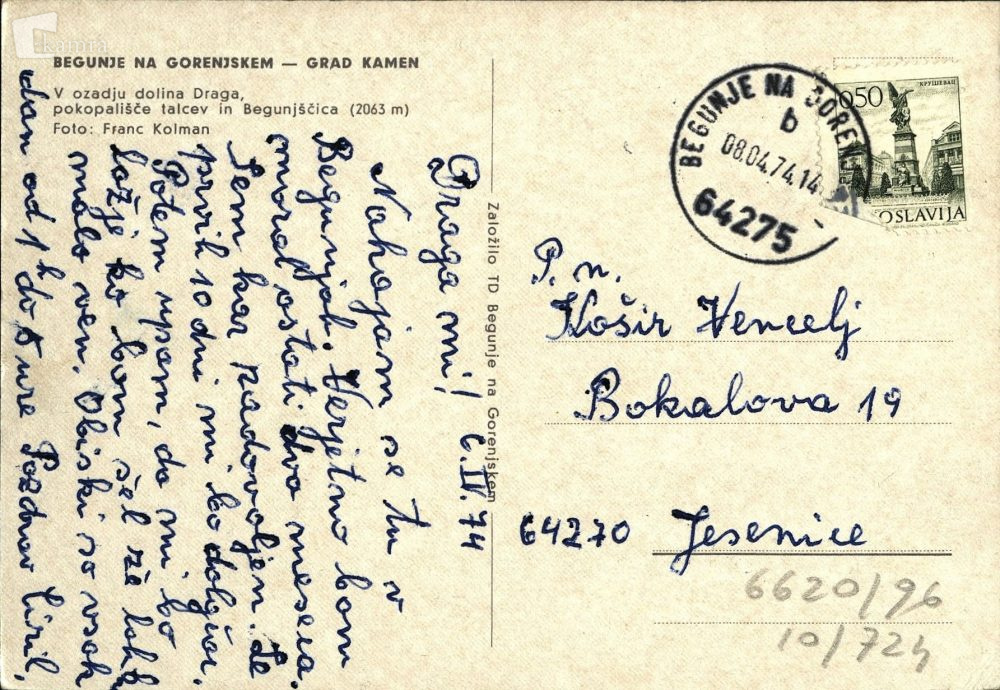 kamra
BEGUNJE NA GORENJSKEM — GRAD KAMEN
V ozadju dolina Draga,
pokopališče talcev in Begunjščica (2063 m)
Foto: Franc Kolman
Draga mi! 6.IV.74
Nahajam se tu v
Begunjah. Verjetno bom
moral ostati dva meseca.
Sem kar zadovoljen. Le
prvih 10 dni mi bo dolgčas.
Potem upam, da mi bo
ložje ko bom šel že lahko
malo ven. Obiski so vsak
dan od 1h do 5 ure Pozdrav Ciril.
Založilo TD Begunje na Gorenjskem
BEGUNJE NA GOREN
b
08.04.74.14
64275
КРУШЕВАЦ
0,50
OSLAVIJA
P. n.
Košir Vencelj
Bokalova 19
64270 Jesenice
6620/96
10/724